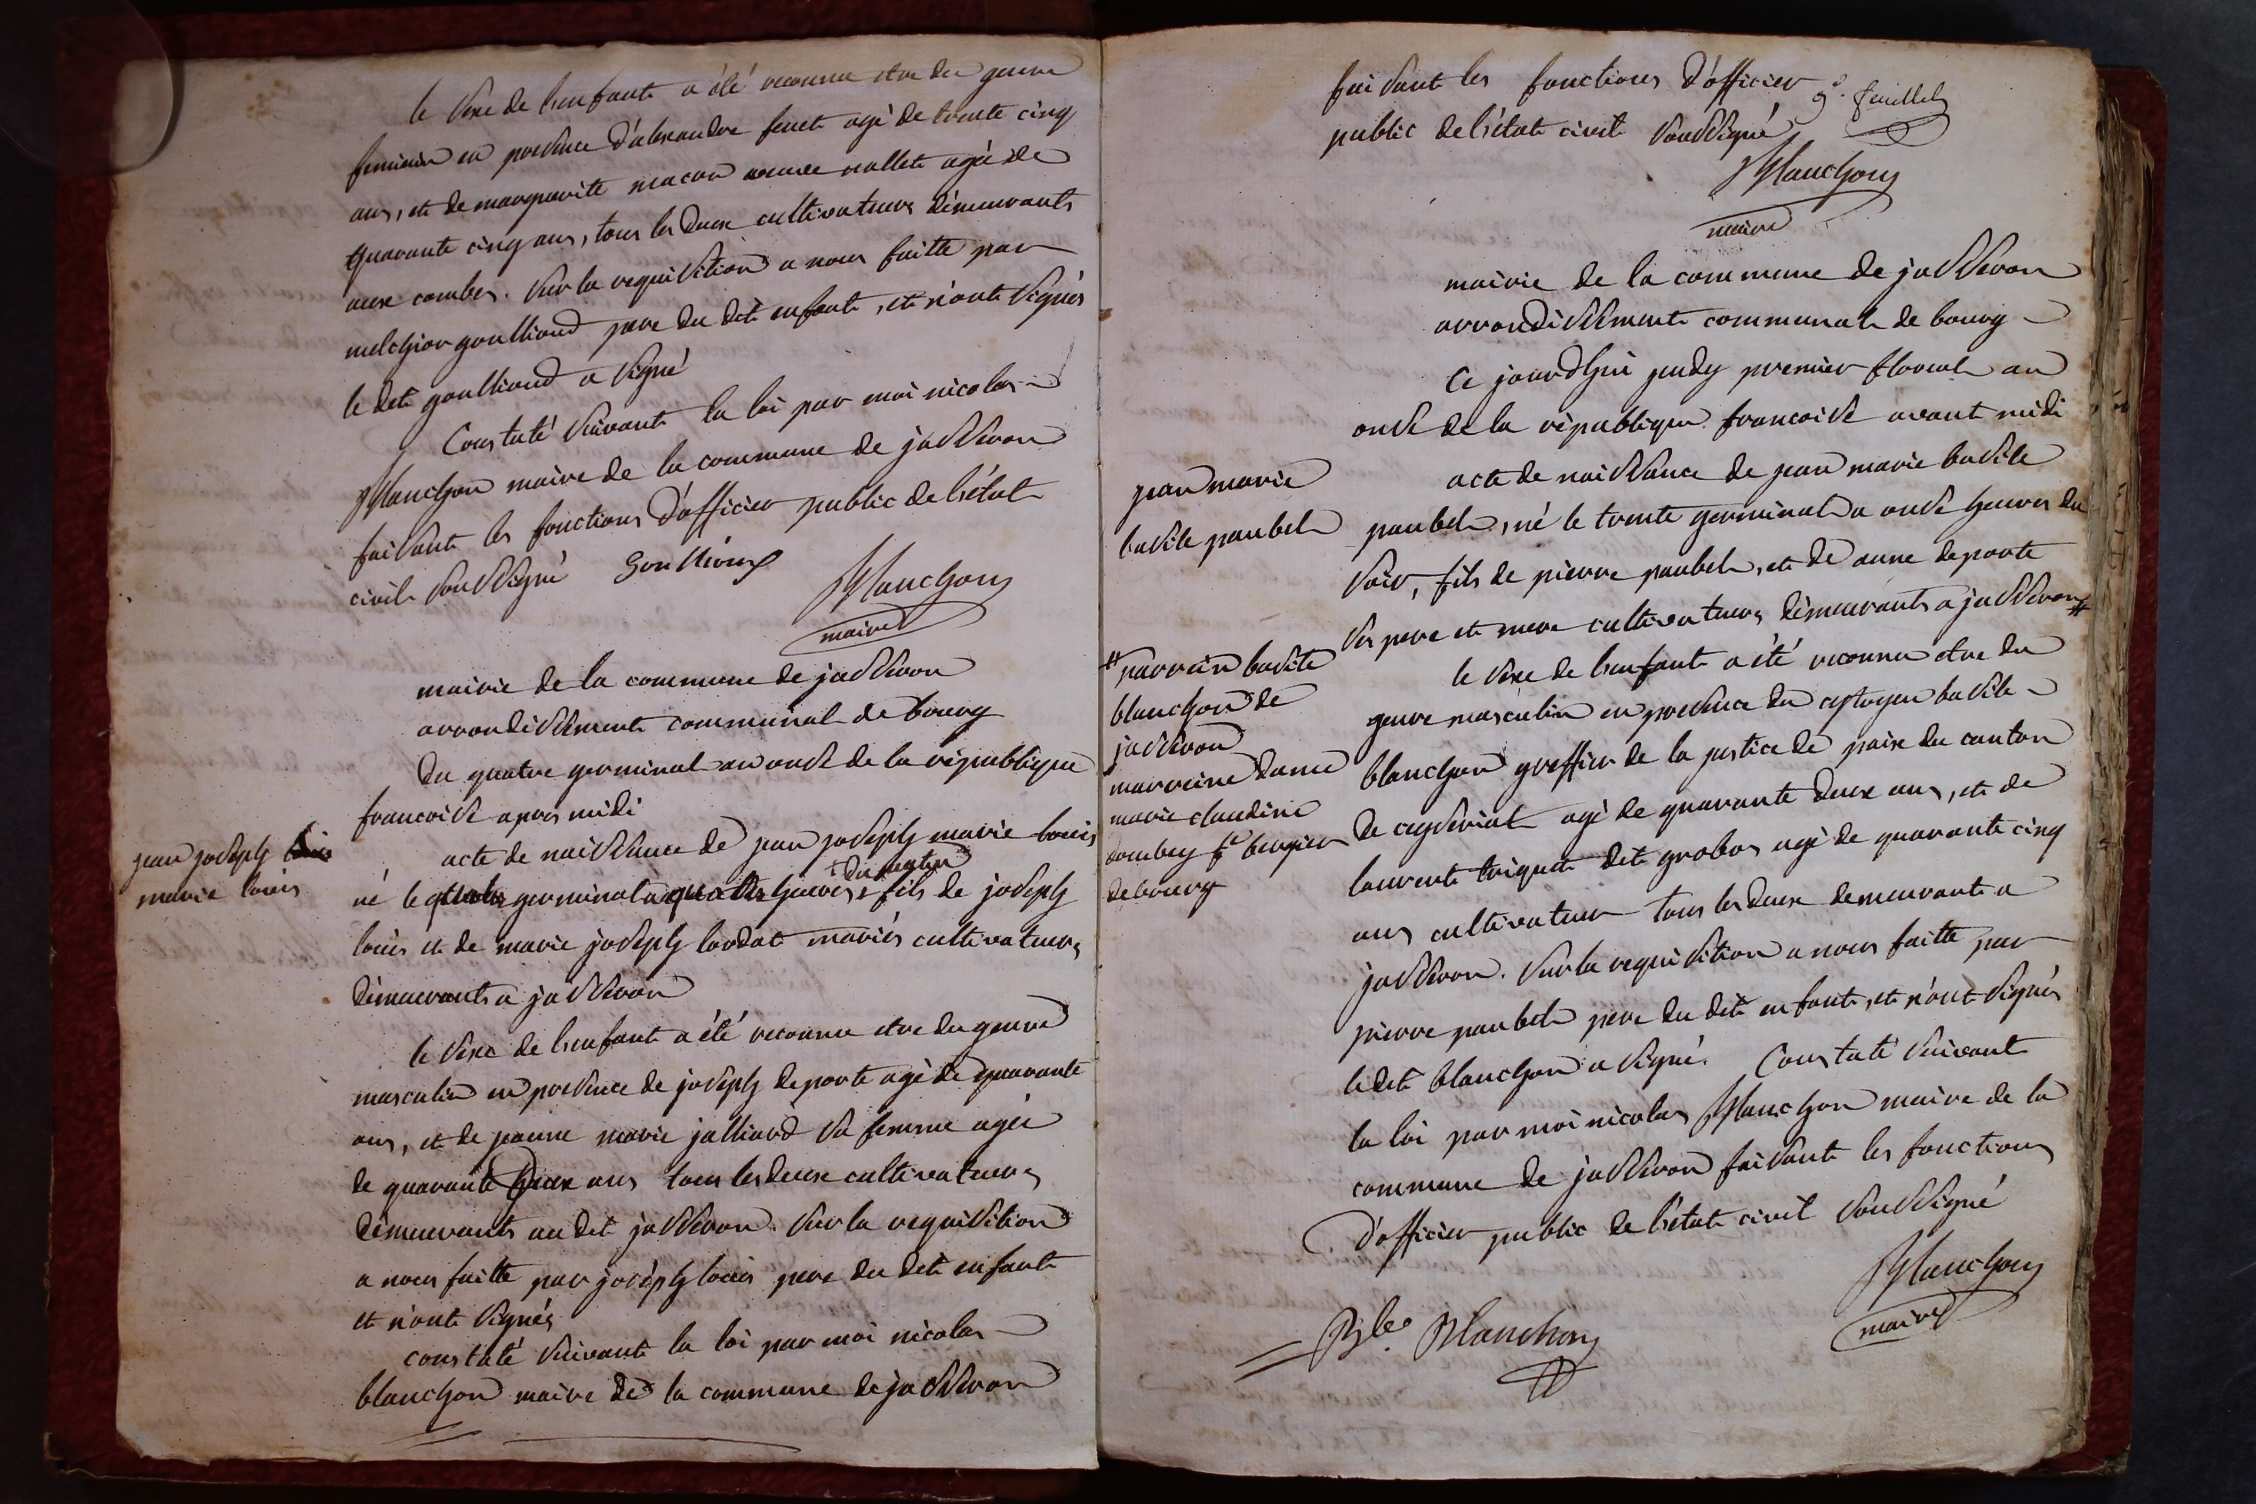 le sexe de l'enfant a été reconnu etre du genre
feminin en presence d'alexandre fenet agé de trente cinq
ans, et de marguerite macon veuve nallet agée de
quarante cinq ans, tous les deux cultivateurs démeurants
aux combes. Sur la requisition a nous faitte par
melchior goullioud pere du dit enfant, et n'ont signés
le dit goullioud a signé
Constaté suivant la loi par moi nicolas
Blanchon maire de la commune de jasseron
faisant les fonctions d'officier public de l'état
civil soussigné Goullioud
Blanchon
maire
mairie de la commune de jasseron
arrondissement communal de bourg
du quatre germinal an onse de la république
francoise apres midi
jean joseph
marie louis
acte de naissance de jean joseph marie louis
né le quatre germinal a quatre heures du matin fils de joseph
louis et de marie joseph lordat mariés cultivateurs
démeurants a jasseron
le sexe de l'enfant a été reconnu etre du genre
masculin en presence de joseph deporte agé de quarante
ans, et de jeanne marie jalliard sa femme agée
de quarante deux ans tous les deux cultivateurs
démeurants au dit jasseron. Sur la requisition
a nous faitte par joseph louis pere du dit enfant
et n'ont signés
constaté suivant la loi par moi nicolas
blanchon maire de la commune de jasseron
9e. feuillet
faisant les fonctions d'officier
public de l'état civil soussigné
Blanchon
maire
mairie de la commune de jasseron
arrondissement communal de bourg
Ce jourdhui judy premier floreal an
onse de la république francoise avant midi
jean marie
basile paubel
acte de naissance de jean marie basile
paubel, né le trente germinal a onse heures du
soir, fils de pierre paubel, et de anne deporte
ses pere et mere cultivateurs démeurants a jasseron #
# parrein basile
blanchon de
jasseron
marreine dame
marie claudine
combey fe bergier
de bourg
le sexe de l'enfant a été reconnu etre du
genre masculin en presence du cytoyen basile
blanchon greffier de la justice de paix du canton
de ceyseriat agé de quarante deux ans, et de
laurent triquet dit grobos agé de quarante cinq
ans cultivateur tous les deux demeurant a
jasseron. Sur la requisition a nous faitte par
pierre paubel pere du dit enfant, et n'ont signés
ledit blanchon a signé. Constaté suivant
la loi par moi nicolas Blanchon maire de la
commune de jasseron faisant les fonctions
d'officier public de l'état civil soussigné
Blanchon
maire
Ble. Blanchon